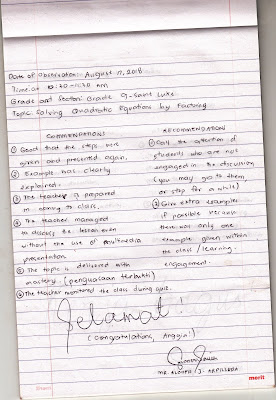 Date of Observation: August 17, 2018
Time: at 10:30 - 11:30 am
Grade and Section: Grade 9 - Saint Luke
Topic: Solving Quadratic Equations by Factoring
COMMENDATIONS
① Good that the steps were
given and presented again.
② Example was clearly
explained.
③ The teacher is prepared
in coming to class.
④ The teacher managed
to discuss the lesson even
without the use of multimedia
presentation
⑤ The topic is delivered with
mastery. (penguasaan terbukti)
⑥ The teacher monitored the class during quiz.
RECOMMENDATION
① Call the attention of
students who are not
engaged in the discussion
(you may go to them
or stop for a while)
② Give extra examples
if possible because
there was only one
example given within
the class / learning
engagement.
Selamat!
(Congratulations, Angajini)
MR. ALDHFA J. ARPILLEDA
merit